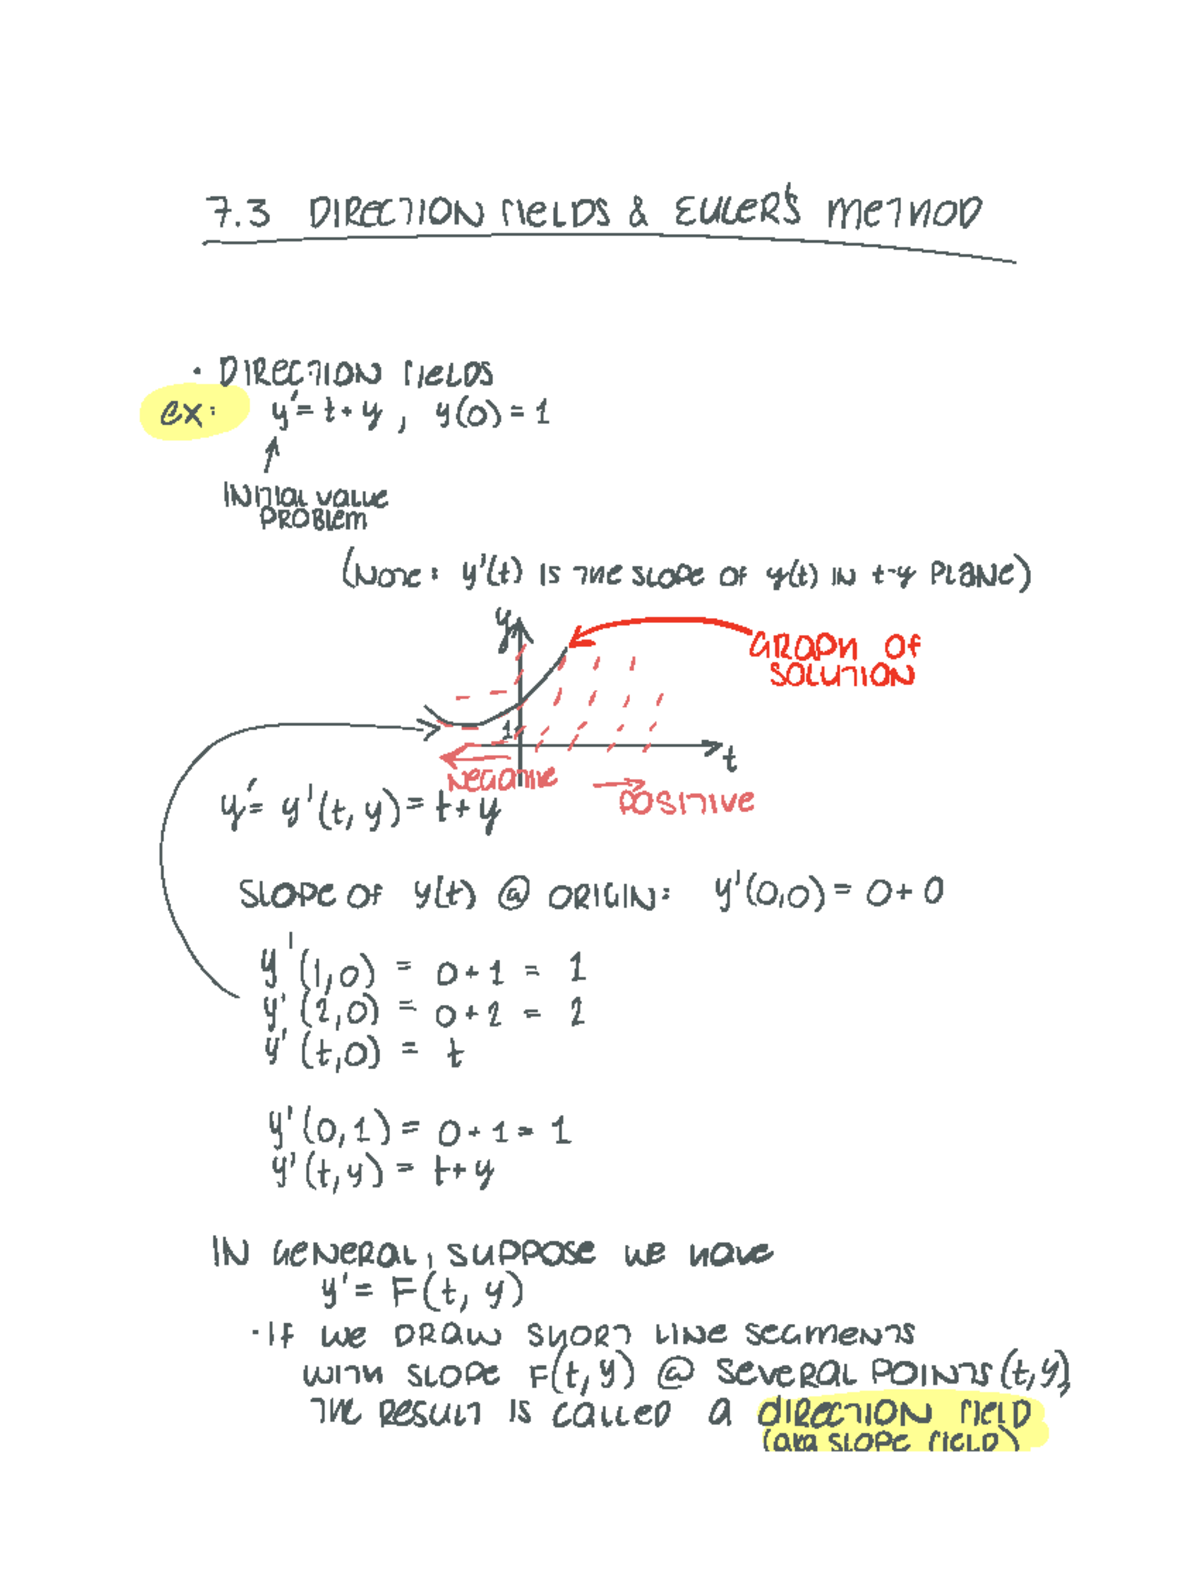 7.3 DIRECTION FIELDS & EULER'S METHOD
• DIRECTION FIELDS
ex: y' = t + y , y(0) = 1
INITIAL VALUE
PROBLEM
(NOTE: y'(t) IS THE SLOPE OF y(t) IN t-y PLANE)
y
GRAPH OF
SOLUTION
1
t
NEGATIVE
POSITIVE
y' = y'(t, y) = t + y
SLOPE OF y(t) @ ORIGIN: y'(0,0) = 0 + 0
y'(1,0) = 0 + 1 = 1
y'(2,0) = 0 + 2 = 2
y'(t,0) = t
y'(0,1) = 0 + 1 = 1
y'(t,y) = t + y
IN GENERAL, SUPPOSE WE HAVE
y' = F(t, y)
• IF WE DRAW SHORT LINE SEGMENTS
WITH SLOPE F(t, y) @ SEVERAL POINTS (t,y),
THE RESULT IS CALLED A DIRECTION FIELD
(AKA SLOPE FIELD)